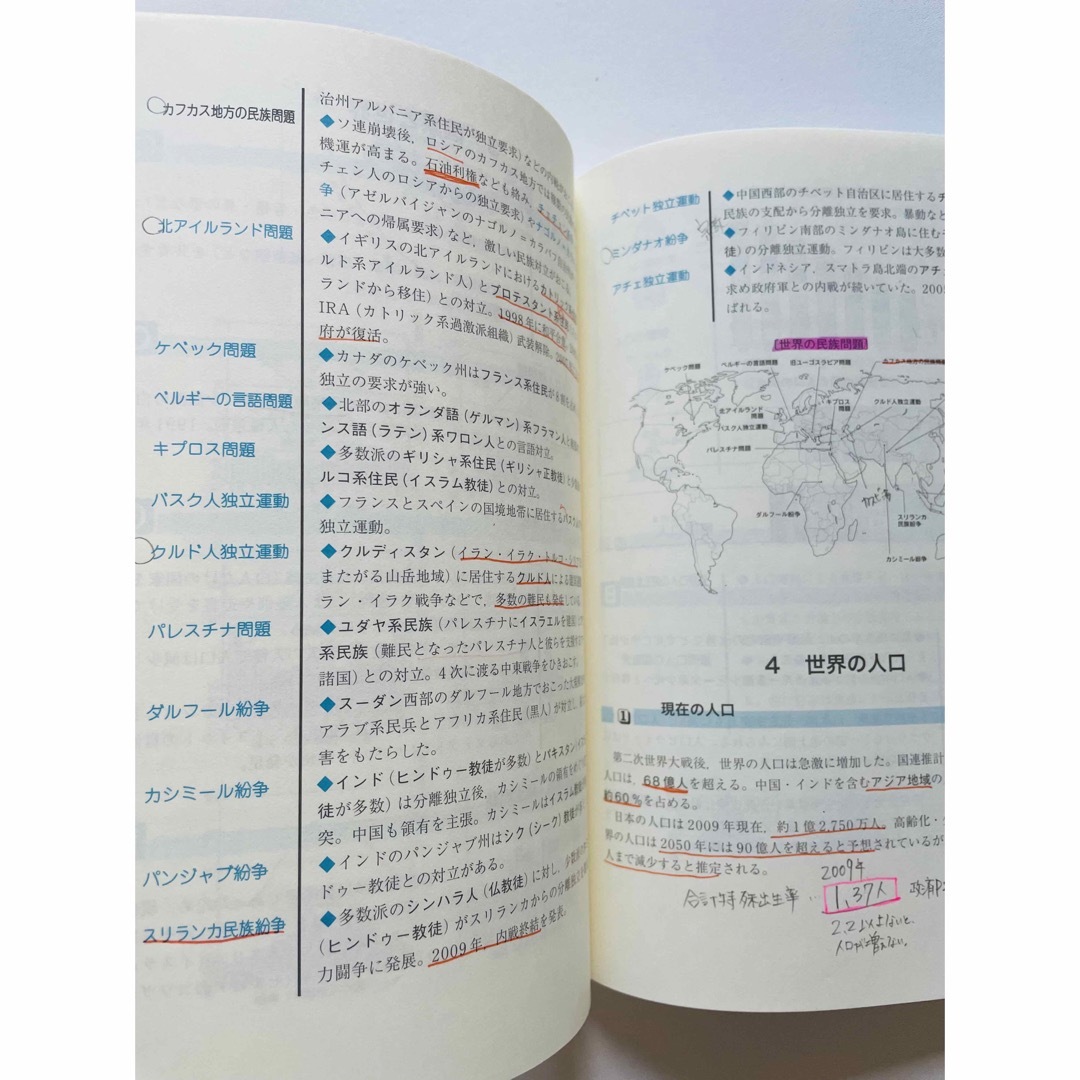 カフカス地方の民族問題
治州アルバニア系住民が独立要求)などの
◆ソ連崩壊後,ロシアのカフカス地方では
機運が高まる。石油利権なども絡み,チェチェン
チェン人のロシアからの独立要求)やナゴルノ
争(アゼルバイジャンのナゴルノ=カラバフ
ニアへの帰属要求)など,激しい民族対立が
北アイルランド問題
◆イギリスの北アイルランドにおけるカトリック
ルト系アイルランド人)とプロテスタント系
ランドから移住)との対立。1998年に和平
IRA(カトリック系過激派組織)武装解除。
府が復活。
ケベック問題
◆カナダのケベック州はフランス系住民が
独立の要求が強い。
ベルギーの言語問題
◆北部のオランダ語(ゲルマン)系フラマン人と
ンス語(ラテン)系ワロン人との言語対立。
キプロス問題
◆多数派のギリシャ系住民(ギリシャ正教徒)と
ルコ系住民(イスラム教徒)との対立。
バスク人独立運動
◆フランスとスペインの国境地帯に居住するバスク
独立運動。
クルド人独立運動
◆クルディスタン(イラン・イラク・トルコ・シリア
またがる山岳地域)に居住するクルド人による
ラン・イラク戦争などで,多数の難民も発生している
パレスチナ問題
◆ユダヤ系民族(パレスチナにイスラエルを建国)
系民族(難民となったパレスチナ人と彼らを支援する
諸国)との対立。4次に渡る中東戦争をひきおこす
ダルフール紛争
◆スーダン西部のダルフール地方でおこった大規模
アラブ系民兵とアフリカ系住民(黒人)が対立し,
害をもたらした。
カシミール紛争
◆インド(ヒンドゥー教徒が多数)とパキスタン
徒が多数)は分離独立後,カシミールの領有をめぐって
突。中国も領有を主張。カシミールはイスラム教徒が
パンジャブ紛争
◆インドのパンジャブ州はシク(シーク)教徒が多
ドゥー教徒との対立がある。
スリランカ民族紛争
◆多数派のシンハラ人(仏教徒)に対し,少数派の
(ヒンドゥー教徒)がスリランカからの分離独立を
力闘争に発展。2009年,内戦終結を発表。
チベット独立運動
◆中国西部のチベット自治区に居住するチ
民族の支配から分離独立を要求。暴動など
ミンダナオ紛争
◆フィリピン南部のミンダナオ島に住む
徒)の分離独立運動。フィリピンは大多数
アチェ独立運動
◆インドネシア,スマトラ島北端のアチェ
求め政府軍との内戦が続いていた。2005
ばれる。
[世界の民族問題]
ケベック問題
ベルギーの言語問題
旧ユーゴスラビア問題
カフカス地方の民族問題
北アイルランド問題
キプロス問題
クルド人独立運動
バスク人独立運動
パレスチナ問題
カスピ海
ダルフール紛争
スリランカ民族紛争
カシミール紛争
4 世界の人口
1 現在の人口
第二次世界大戦後,世界の人口は急激に増加した。国連推計
人口は,68億人を超える。中国・インドを含むアジア地域の
約60%を占める。
日本の人口は2009年現在,約1億2,750万人。高齢化・
界の人口は2050年には90億人を超えると予想されているが
人まで減少すると推定される。
2009年
合計特殊出生率…1.37人
2.2以上ないと
人口が増えない。